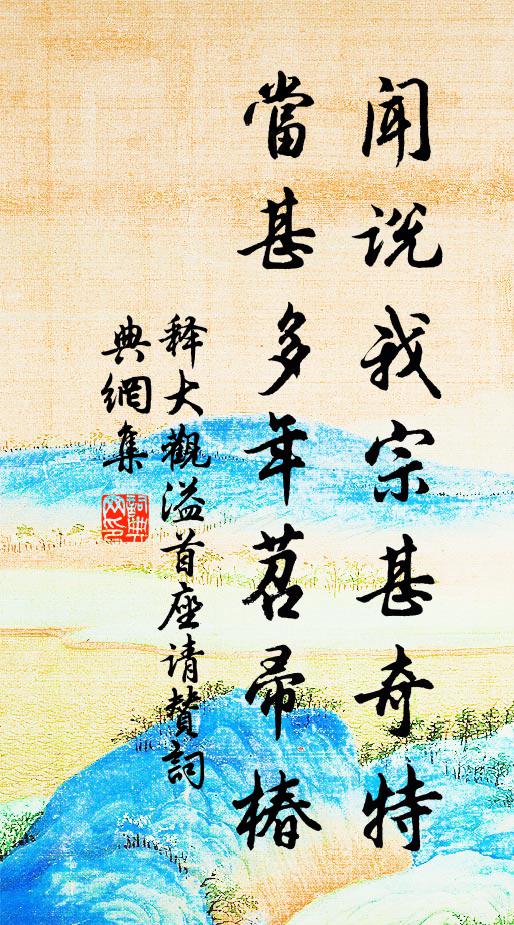 闻说我宗甚奇特
當甚多年苕帚樁
释大觀溢首座请贊詞
典網集